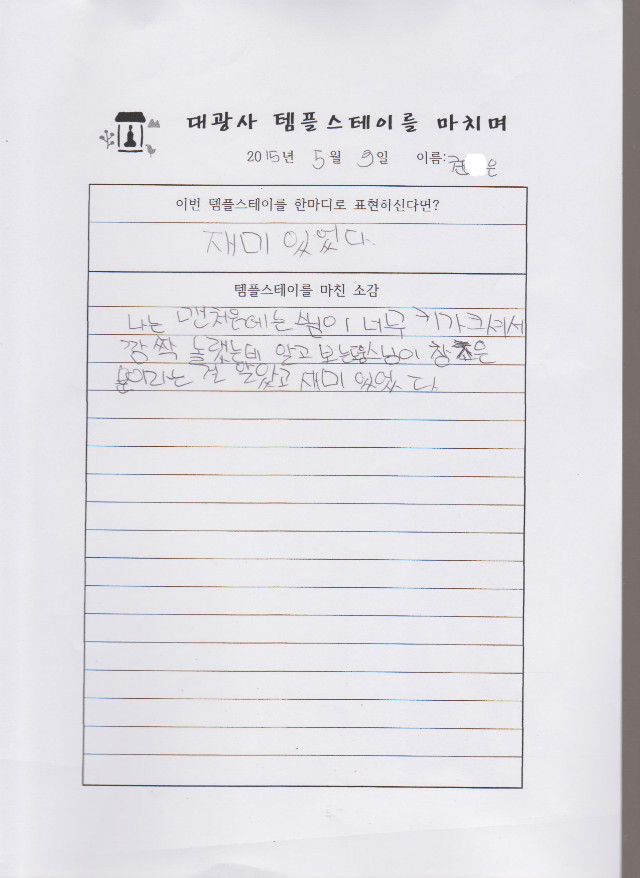 대광사 템플스테이를 마치며
2015년 5월 9일 이름: 권 은
이번 템플스테이를 한마디로 표현하신다면?
재미 있었다.
템플스테이를 마친 소감
나는 맨처음에는 스님이 너무 키가크셔서
깜짝 놀랬는데 알고 보는 스님이 참 좋은
분이라는 걸 알았고 재미 있었다.